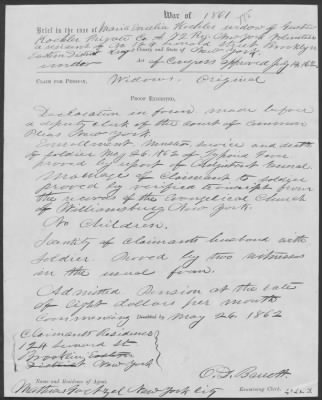 War of 1861
Brief in the case of Maria Rosalia Kochler widow of
Kochler Private Co A 72 Reg. New York Volunteers
a resident of No 124 Leonard Street Brooklyn
Eastern District Kings County and State of New York.
under Act of Congress approved July 14, 1862
CLAIM FOR PENSION, Widows. Original
PROOF EXHIBITED.
Declaration in form, made before
a deputy clerk of the court of common
Pleas New York.
Enrollment, Muster, service and death
of soldier May 26. 1862 of Typhoid Fever
proved by report of Adjutant General.
Marriage of Claimant to soldier
proved by verified transcript from
the records of the Evangelical Church
of Williamsburg New York.
No Children.
Identity of Claimants husband with
soldier Proved by two witnesses
in the usual form.
Admitted Pension at the rate
of Eight dollars per month
Commencing May 26, 1862
Claimants Residence
124 Leonard St
Brooklyn Eastern
District New York
Examining Clerk.
Name and Residence of Agent,
New York City